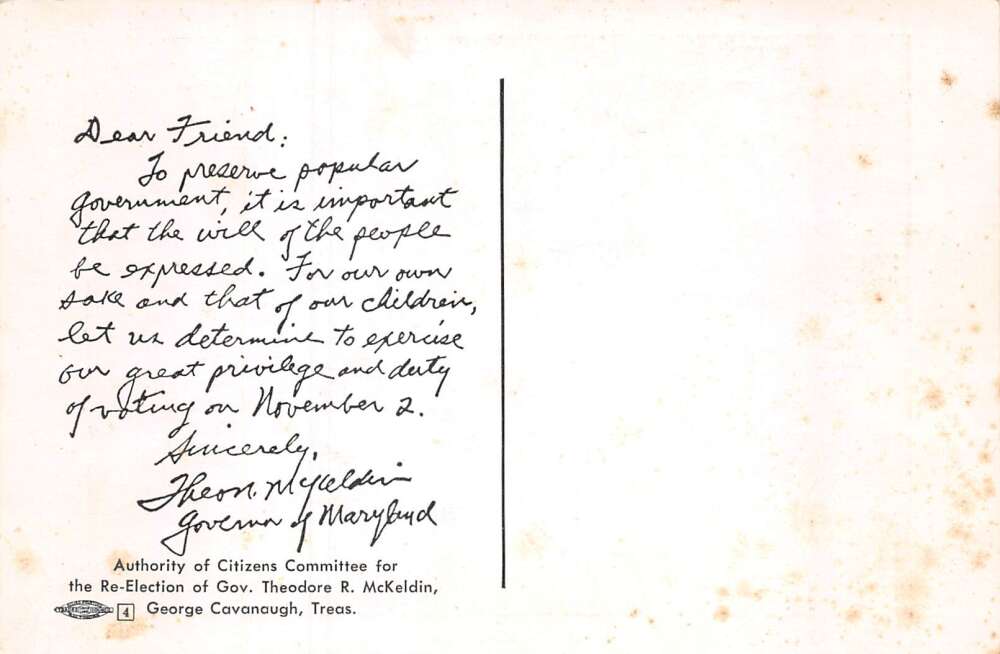 Dear Friend:
To preserve popular
government, it is important
that the will of the people
be expressed. For our own
sake and that of our children,
let us determine to exercise
our great privilege and duty
of voting on November 2.
Sincerely,
Theo R. McKeldin
Governor of Maryland
Authority of Citizens Committee for
the Re-Election of Gov. Theodore R. McKeldin,
4 George Cavanaugh, Treas.